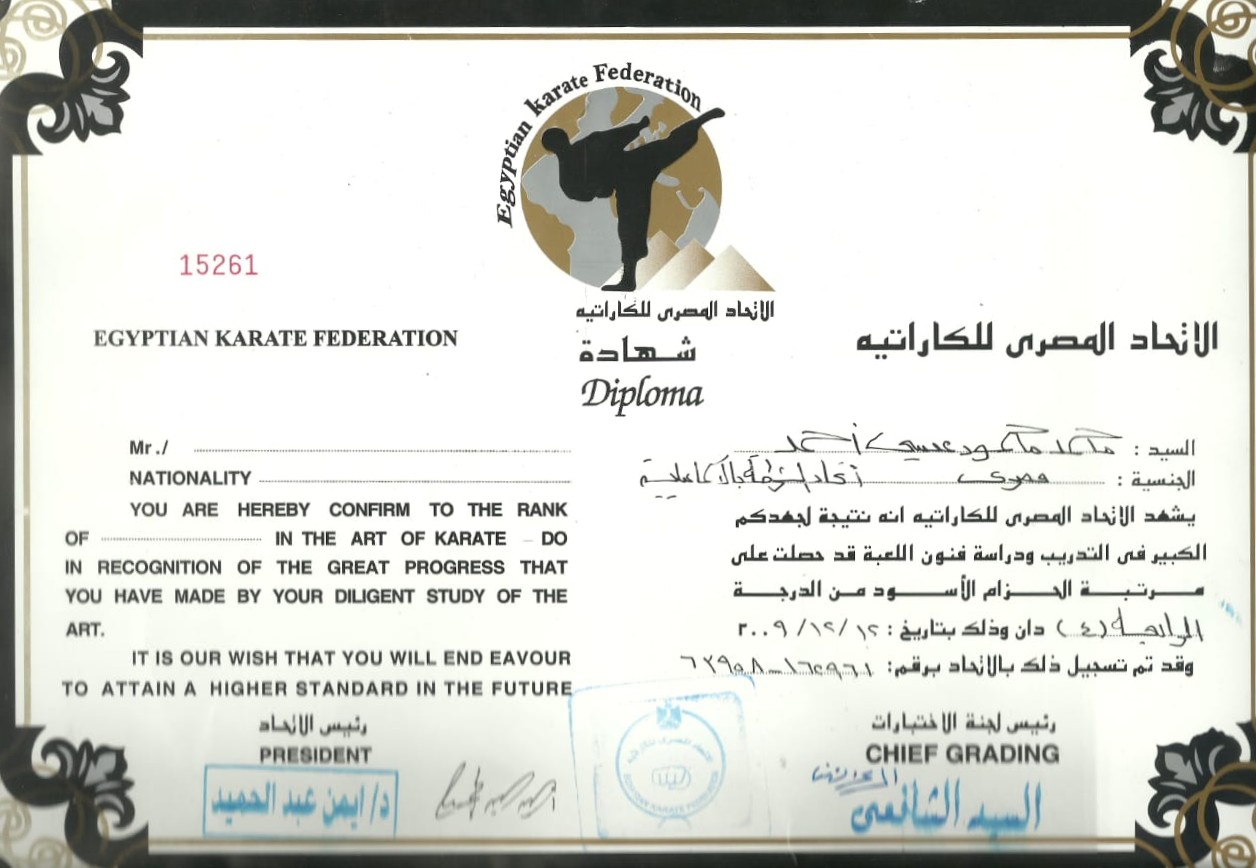 Egyptian karate Federation
15261
الاتحاد المصرى للكاراتيه
EGYPTIAN KARATE FEDERATION
الاتحاد المصرى للكاراتيه
شهادة
Diploma
Mr./
NATIONALITY
YOU ARE HEREBY CONFIRM TO THE RANK
OF IN THE ART OF KARATE - DO
IN RECOGNITION OF THE GREAT PROGRESS THAT
YOU HAVE MADE BY YOUR DILIGENT STUDY OF THE
ART.
IT IS OUR WISH THAT YOU WILL END EAVOUR
TO ATTAIN A HIGHER STANDARD IN THE FUTURE
السيد : محمد محمود عيسى أحمد
الجنسية : مصرى
يشهد الاتحاد المصرى للكاراتيه انه نتيجة لجهدكم
الكبير فى التدريب ودراسة فنون اللعبة قد حصلت على
مرتبة الحزام الأسود من الدرجة
الرابعة (٤) دان وذلك بتاريخ : ٢٠٠٩/١٢/١٢
وقد تم تسجيل ذلك بالاتحاد برقم:
رئيس الاتحاد
PRESIDENT
د/ ايمن عبد الحميد
رئيس لجنة الاختبارات
CHIEF GRADING
السيد الشافعى